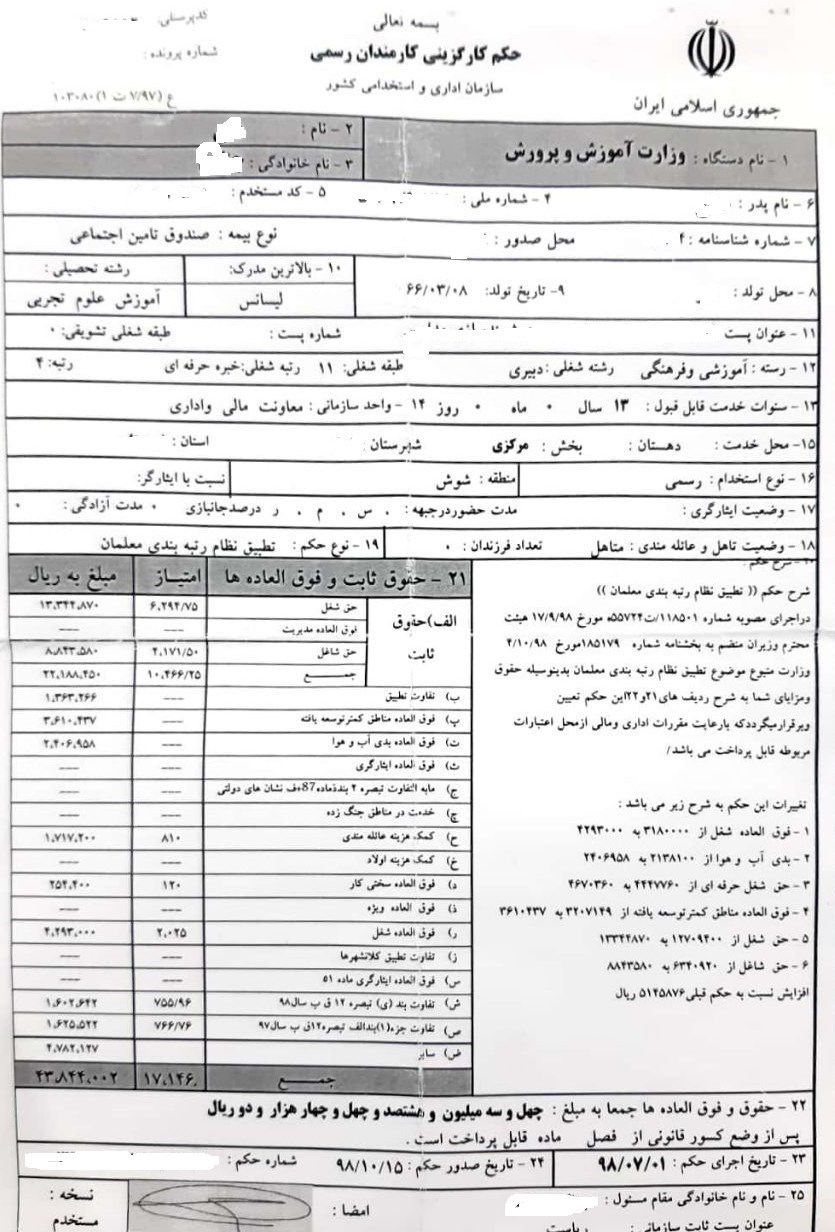 بسمه تعالی
کدپرسنلی:
حکم کارگزینی کارمندان رسمی
شماره پرونده:
سازمان اداری و استخدامی کشور
ع (۷/۹۷ ت ۱) ۱۰۳۰۸۰
جمهوری اسلامی ایران
۱ - نام دستگاه : وزارت آموزش و پرورش
۲ - نام :
۳ - نام خانوادگی :
۶ - نام پدر : ۴ - شماره ملی : ۵ - کد مستخدم :
۷ - شماره شناسنامه : ۴ محل صدور : نوع بیمه : صندوق تامین اجتماعی
۸ - محل تولد : ۹- تاریخ تولد: ۶۶/۰۳/۰۸ ۱۰ - بالاترین مدرک: لیسانس رشته تحصیلی : آموزش علوم تجربی
۱۱ - عنوان پست شماره پست : طبقه شغلی تشویقی: ۰
۱۲ - رسته : آموزشی وفرهنگی رشته شغلی : دبیری طبقه شغلی: ۱۱ رتبه شغلی:خبره حرفه ای رتبه: ۴
۱۳ - سنوات خدمت قابل قبول : ۱۳ سال ۰ ماه ۰ روز ۱۴ - واحد سازمانی : معاونت مالی واداری
۱۵- محل خدمت : دهستان : بخش : مرکزی شهرستان : استان :
۱۶ - نوع استخدام : رسمی منطقه : شوش نسبت با ایثارگر:
۱۷ - وضعیت ایثارگری : مدت حضوردرجبهه : . س . م . ر درصدجانبازی ۰ مدت آزادگی : ۰
۱۸ - وضعیت تاهل و عائله مندی : متاهل تعداد فرزندان : ۰ ۱۹ - نوع حکم : تطبیق نظام رتبه بندی معلمان
۲۰ - شرح حکم :
شرح حکم (( تطبیق نظام رتبه بندی معلمان ))
دراجرای مصوبه شماره ۱۱۸۵۰۱/ت۵۵۷۲۴ه مورخ ۱۷/۹/۹۸ هیئت
محترم وزیران منضم به بخشنامه شماره ۱۸۵۱۷۹مورخ ۴/۱۰/۹۸
وزارت متبوع موضوع تطبیق نظام رتبه بندی معلمان بدینوسیله حقوق
ومزایای شما به شرح ردیف های۲۱و۲۲این حکم تعیین
وبرقرارمیگرددکه بارعایت مقررات اداری ومالی ازمحل اعتبارات
مربوطه قابل پرداخت می باشد/
تغییرات این حکم به شرح زیر می باشد :
۱ - فوق العاده شغل از ۳۱۸۰۰۰۰ به ۴۲۹۳۰۰۰
۲ - بدی آب و هوا از ۲۱۳۸۱۰۰ به ۲۴۰۶۹۵۸
۳ - حق شغل حرفه ای از ۴۴۴۷۷۶۰ به ۴۶۷۰۳۶۰
۴ - فوق العاده مناطق کمترتوسعه یافته از ۳۲۰۷۱۴۹ به ۳۶۱۰۴۳۷
۵ - حق شغل از ۱۲۷۰۹۴۰۰ به ۱۳۳۴۴۸۷۰
۶ - حق شاغل از ۶۳۴۰۹۲۰ به ۸۸۴۳۵۸۰
افزایش نسبت به حکم قبلی۵۱۴۵۸۷۶ ریال
۲۱ - حقوق ثابت و فوق العاده ها امتیاز مبلغ به ریال
الف)حقوق ثابت
حق شغل ۶,۲۹۴/۷۵ ۱۳,۳۴۴,۸۷۰
فوق العاده مدیریت --- ---
حق شاغل ۴,۱۷۱/۵۰ ۸,۸۴۳,۵۸۰
جمـــــع ۱۰,۴۶۶/۲۵ ۲۲,۱۸۸,۴۵۰
ب) تفاوت تطبیق --- ۱,۳۶۳,۲۶۶
پ) فوق العاده مناطق کمترتوسعه یافته --- ۳,۶۱۰,۴۳۷
ت) فوق العاده بدی آب و هوا --- ۲,۴۰۶,۹۵۸
ث) فوق العاده ایثارگری --- ---
ج) مابه التفاوت تبصره ۲ بندذماده87ءف نشان های دولتی --- ---
چ) خدمت در مناطق جنگ زده --- ---
ح) کمک هزینه عائله مندی ۸۱۰ ۱,۷۱۷,۲۰۰
خ) کمک هزینه اولاد --- ---
د) فوق العاده سختی کار ۱۲۰ ۲۵۴,۴۰۰
ذ) فوق العاده ویژه --- ---
ر) فوق العاده شغل ۲,۰۲۵ ۴,۲۹۳,۰۰۰
ز) تفاوت تطبیق کلانشهرها --- ---
س) فوق العاده ایثارگری ماده ۵۱ --- ---
ش) تفاوت بند (ی) تبصره ۱۲ ق ب سال۹۸ ۷۵۵/۹۶ ۱,۶۰۲,۶۴۲
ص) تفاوت جزء(۱)بندالف تبصره۱۲ق ب سال۹۷ ۷۶۶/۷۶ ۱,۶۲۵,۵۲۲
ض) سایر ۴,۷۸۲,۱۲۷
جمـــــع ۱۷,۱۴۶. ۴۳,۸۴۴,۰۰۲
۲۲ - حقوق و فوق العاده ها جمعا به مبلغ : چهل و سه میلیون و هشتصد و چهل و چهار هزار و دو ریال
پس از وضع کسور قانونی از فصل ماده قابل پرداخت است .
۲۳ - تاریخ اجرای حکم : ۹۸/۰۷/۰۱ ۲۴ - تاریخ صدور حکم : ۹۸/۱۰/۱۵ شماره حکم :
۲۵ - نام و نام خانوادگی مقام مسئول : امضا : نسخه :
عنوان پست ثابت سازمانی : ریاست مستخدم